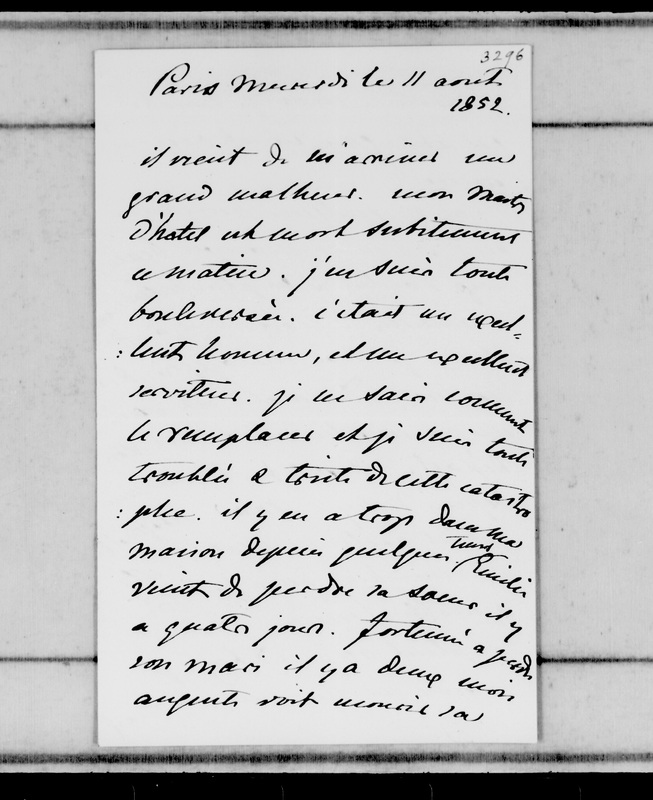 3296
Paris mercredi le 11 aout
1852.
il vient de m'arriver un
grand malheur. mon maitre
d'hotel est mort subitement
ce matin. j'en suis toute
bouleversée. c'etait un excel-
:lent homme, et un excellent
serviteur. je ne sais comment
le remplacer et je suis toute
troublée & triste de cette catastro
:phe. il y en a trop dans ma
maison depuis quelques tems. Emilie
vient de perdre sa soeur il y
a quatre jours. fortunée a perdu
son mari il y a deux mois
auguste voit mourir sa